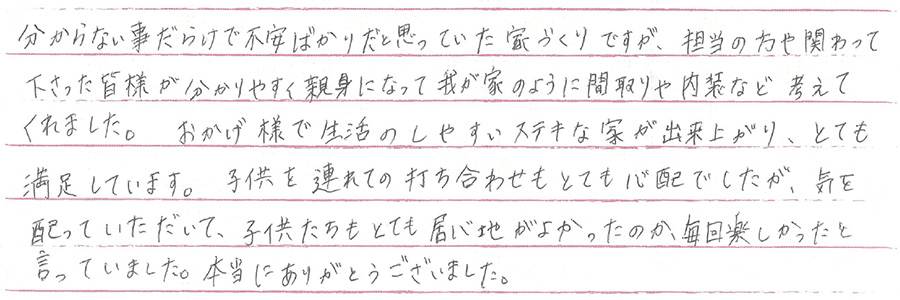 分からない事だらけで不安ばかりだと思っていた家づくりですが、担当の方や関わって
下さった皆様が分かりやすく親身になって我が家のように間取りや内装など考えて
くれました。 おかげ様で生活のしやすいステキな家が出来上がり、とても
満足しています。 子供を連れての打ち合わせもとても心配でしたが、気を
配っていただいて、子供たちもとても居心地がよかったのか、毎回楽しかったと
言っていました。本当にありがとうございました。